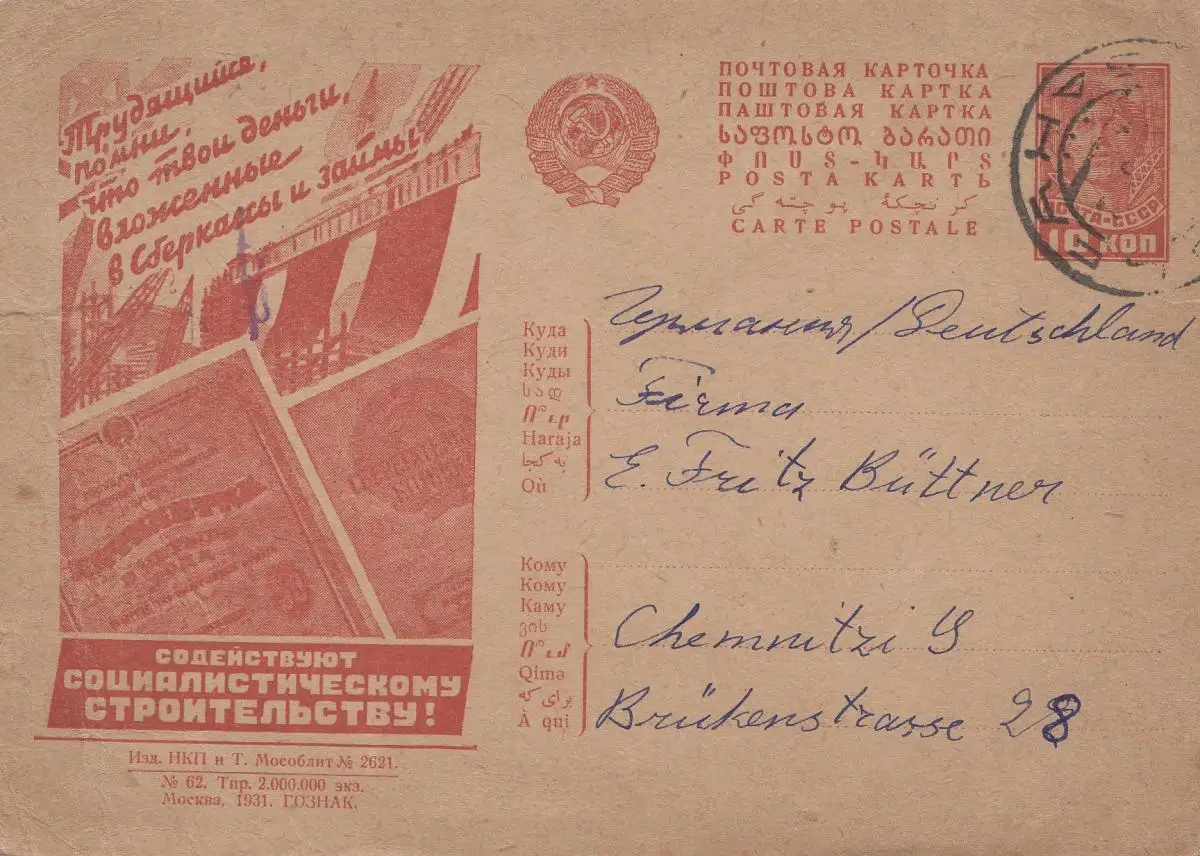 Трудящийся,
помни,
что твои деньги,
вложенные
в Сберкассы и займы
СОДЕЙСТВУЮТ
СОЦИАЛИСТИЧЕСКОМУ
СТРОИТЕЛЬСТВУ!
Изд. НКП и Т. Мособлит № 2621.
№ 62. Тир. 2.000.000 экз.
Москва, 1931. ГОЗНАК.
ПОЧТОВАЯ КАРТОЧКА
ПОШТОВА КАРТКА
ПАШТОВАЯ КАРТКА
ᲡᲐᲤᲝᲡᲢᲝ ᲑᲐᲠᲐᲗᲘ
ՓՈՍՏ-ԿԱՐՏ
POSTA KARTЬ
CARTE POSTALE
ПОЧТА-СССР
10 КОП
Германия/Deutschland
Firma
E. Fritz Büttner
Chemnitzi S
Brükenstrasse 28
Куда
Куди
Куды
სად
Ո՞ւր
Haraja
به کجا
Où
Кому
Кому
Каму
ვის
Ո՞ւմ
Qimə
برای که
À qui